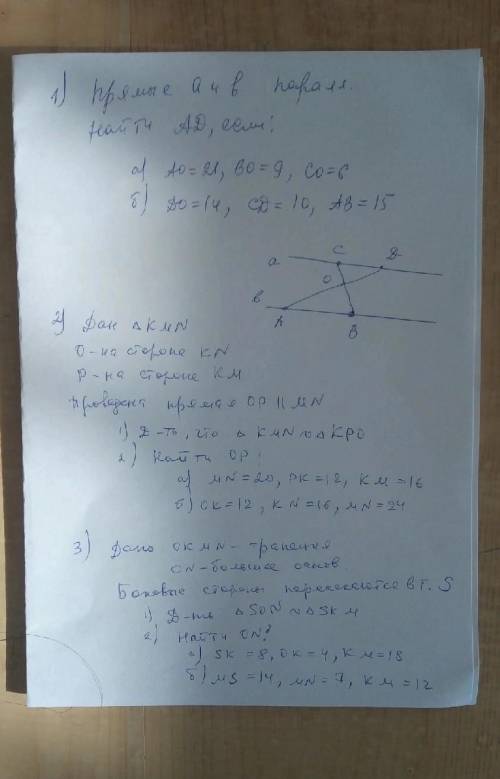 1) Прямые a и b паралл.
Найти AD, если:
а) AO=21, BO=9, CO=6
б) DO=14, CD=10, AB=15
a C D
O
b
A B
2) Дан △KMN
O-на стороне KN
P-на стороне KM
Проведена прямая OP || MN
1) Д-ть, что △KMN ∾ △KPO
2) Найти OP:
а) MN=20, PK=12, KM=16
б) OK=12, KN=16, MN=24
3) Дано OKMN-трапеция
ON-большее основ.
Боковые стороны пересекаются в т. S
1) Д-ть △SON ∾ △SKM
2) Найти ON:
а) SK=8, OK=4, KM=18
б) MS=14, MN=7, KM=12